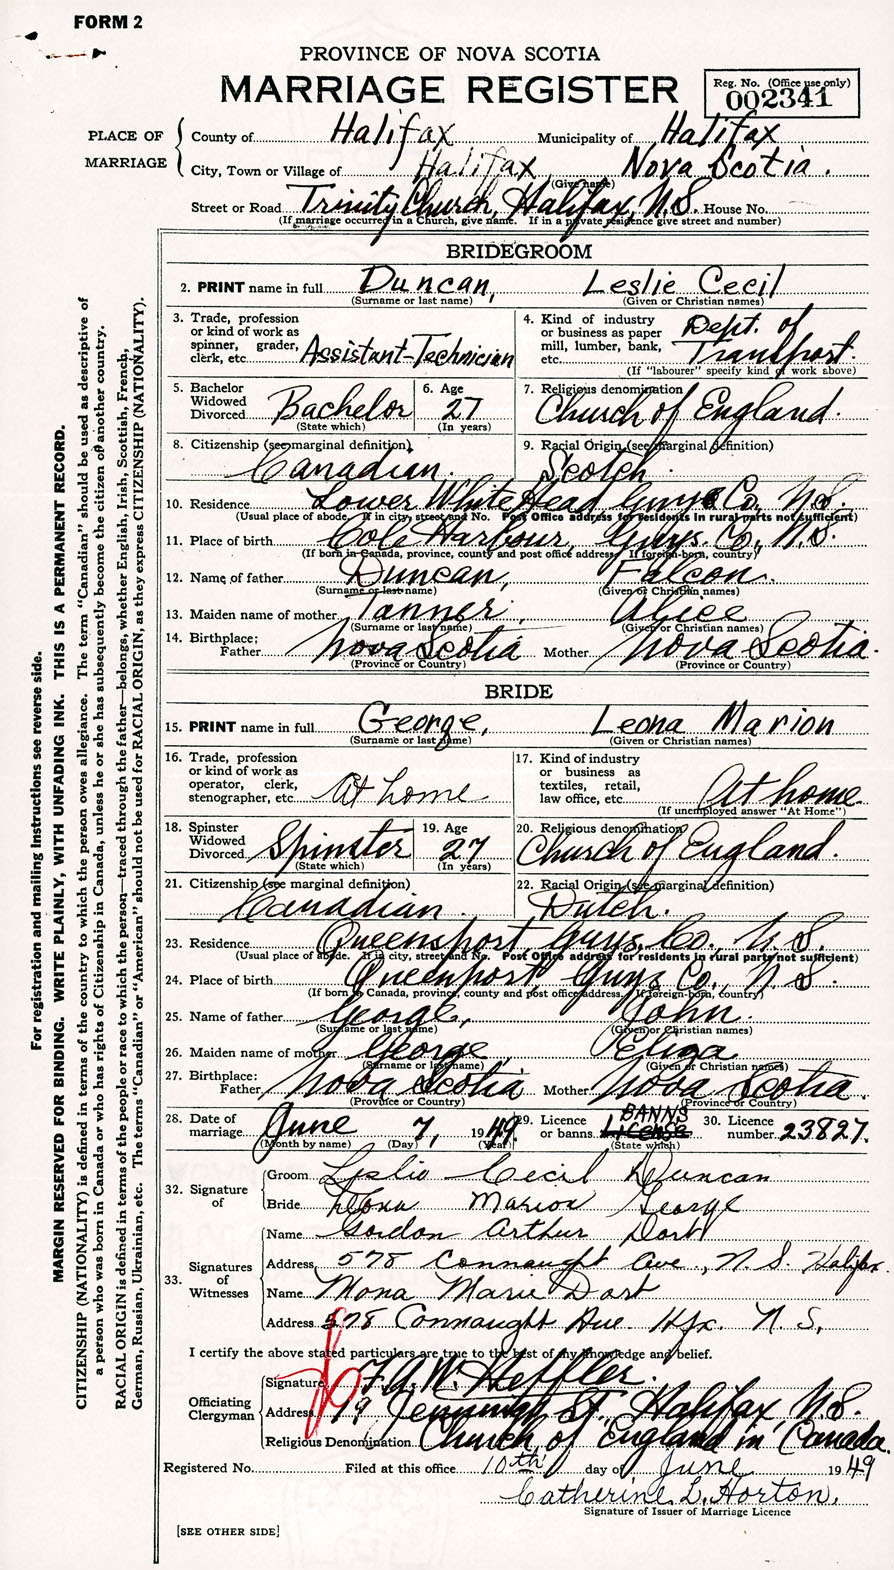 FORM 2
PROVINCE OF NOVA SCOTIA
MARRIAGE REGISTER
Reg. No. (Office use only)
002341
PLACE OF MARRIAGE
County of Halifax Municipality of Halifax
City, Town or Village of Halifax, Nova Scotia.
(Give name)
Street or Road Trinity Church, Halifax, N.S. House No.
(If marriage occurred in a Church, give name. If in a private residence give street and number)
BRIDEGROOM
2. PRINT name in full Duncan, Leslie Cecil
(Surname or last name) (Given or Christian names)
3. Trade, profession or kind of work as spinner, grader, clerk, etc. Assistant-Technician
4. Kind of industry or business as paper mill, lumber, bank, etc. Dept. of Transport.
(If "labourer" specify kind of work above)
5. Bachelor Widowed Divorced Bachelor (State which)
6. Age 27 (In years)
7. Religious denomination Church of England.
8. Citizenship (see marginal definition) Canadian.
9. Racial Origin (see marginal definition) Scotch.
10. Residence Lower White Head Guys Co., N.S.
(Usual place of abode. If in city, street and No. Post Office address for residents in rural parts not sufficient)
11. Place of birth Cole Harbour, Guys. Co., N.S.
(If born in Canada, province, county and post office address. If foreign-born, country)
12. Name of father Duncan, Falcon.
(Surname or last name) (Given or Christian names)
13. Maiden name of mother Tanner, Alice
(Surname or last name) (Given or Christian names)
14. Birthplace: Father Nova Scotia Mother Nova Scotia.
(Province or Country) (Province or Country)
BRIDE
15. PRINT name in full George, Leona Marion
(Surname or last name) (Given or Christian names)
16. Trade, profession or kind of work as operator, clerk, stenographer, etc. At home
17. Kind of industry or business as textiles, retail, law office, etc. At home.
(If unemployed answer "At Home")
18. Spinster Widowed Divorced Spinster (State which)
19. Age 27 (In years)
20. Religious denomination Church of England.
21. Citizenship (see marginal definition) Canadian.
22. Racial Origin (see marginal definition) Dutch.
23. Residence Queensport, Guys. Co., N.S.
(Usual place of abode. If in city, street and No. Post Office address for residents in rural parts not sufficient)
24. Place of birth Queenport, Guys Co., N.S.
(If born in Canada, province, county and post office address. If foreign-born, country)
25. Name of father George, John.
(Surname or last name) (Given or Christian names)
26. Maiden name of mother George, Eliza
(Surname or last name) (Given or Christian names)
27. Birthplace: Father Nova Scotia Mother Nova Scotia.
(Province or Country) (Province or Country)
28. Date of marriage June 7, 1949.
(Month by name) (Day) (Year)
29. Licence or banns BANNS License (State which)
30. Licence number 23827.
32. Signature of
Groom Leslie Cecil Duncan
Bride Leona Marion George
33. Signatures of Witnesses
Name Gordon Arthur Dort
Address 578 Connaught Ave., N.S. Halifax.
Name Mona Marie Dort
Address 578 Connaught Ave Hfx. N.S.
I certify the above stated particulars are true to the best of my knowledge and belief.
Officiating Clergyman
Signature F.A.W. Heffler.
Address 79 Jennings St. Halifax, N.S.
Religious Denomination Church of England in Canada.
Registered No. Filed at this office 10th day of June 1949
Catherine L. Horton.
Signature of Issuer of Marriage Licence
[SEE OTHER SIDE]
For registration and mailing Instructions see reverse side.
MARGIN RESERVED FOR BINDING. WRITE PLAINLY, WITH UNFADING INK. THIS IS A PERMANENT RECORD.
CITIZENSHIP (NATIONALITY) is defined in terms of the country to which the person owes allegiance. The term "Canadian" should be used as descriptive of
a person who was born in Canada or who has rights of Citizenship in Canada, unless he or she has subsequently become the citizen of another country.
RACIAL ORIGIN is defined in terms of the people or race to which the person—traced through the father—belongs, whether English, Irish, Scottish, French,
German, Russian, Ukrainian, etc. The terms "Canadian" or "American" should not be used for RACIAL ORIGIN, as they express CITIZENSHIP (NATIONALITY).